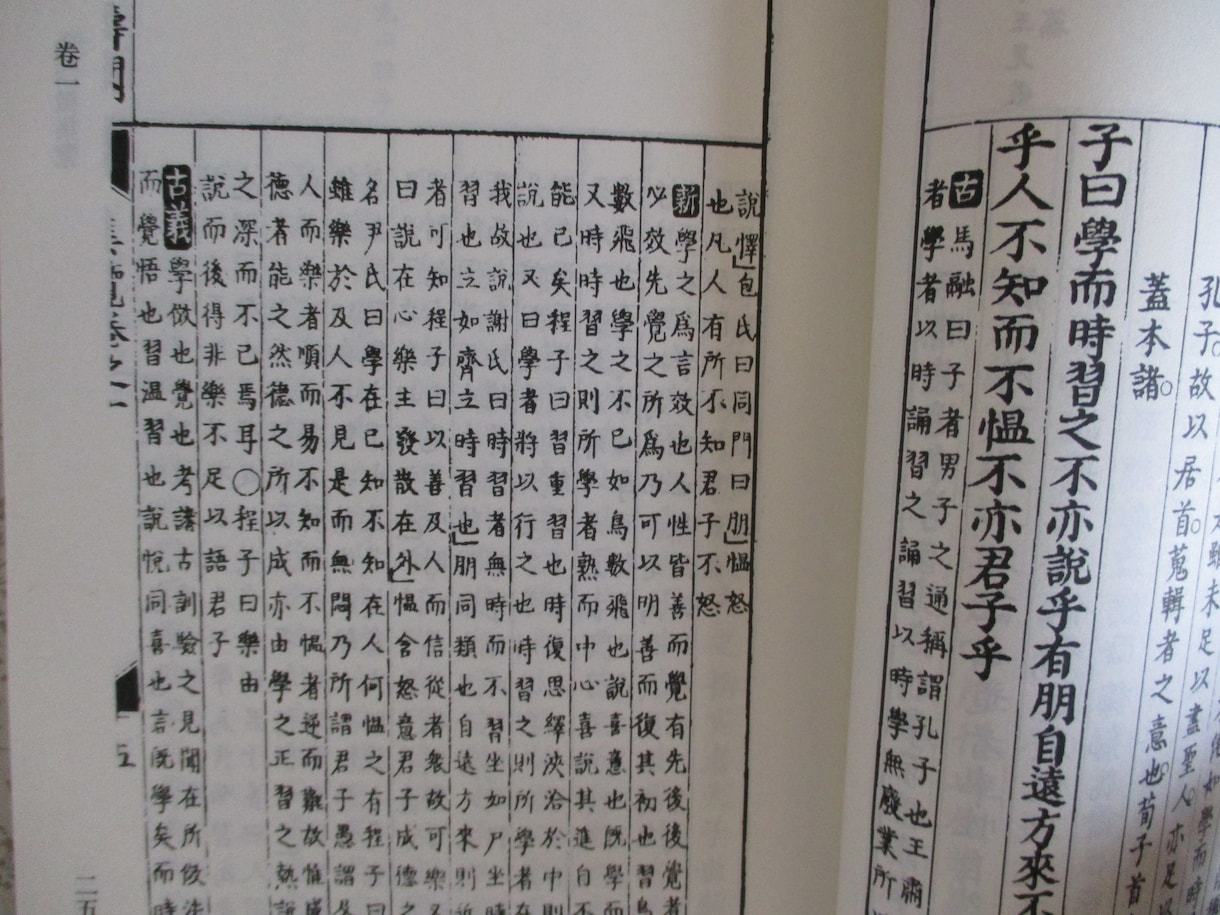 雖未足以盡聖人亦足以
孔子。故以居首。蒐輯者之意也。荀子首
蓋本諸。
子曰學而時習之不亦說乎有朋自遠方來不
乎人不知而不慍不亦君子乎
古馬融曰子者男子之通稱謂孔子也王肅
者學者以時誦習之誦習以時學無廢業所
說懌」包氏曰同門曰朋」慍怒
也凡人有所不知君子不怒
新學之爲言效也人性皆善而覺有先後後覺者
必效先覺之所爲乃可以明善而復其初也習鳥
數飛也學之不已如鳥數飛也說喜意也既學而
又時時習之則所學者熟而中心喜說其進自不
能已矣程子曰習重習也時復思繹浹洽於中則
說也又曰學者將以行之也時習之則所學者在
我故說謝氏曰時習者無時而不習坐如尸坐時
習也立如齊立時習也」朋同類也自遠方來則近
者可知程子曰以善及人而信從者衆故可樂又
曰說在心樂主發散在外」慍含怒意君子成德之
名尹氏曰學在己知不知在人何慍之有程子曰
雖樂於及人不見是而無悶乃所謂君子愚謂及
人而樂者順而易不知而不慍者逆而難故惟成
德者能之然德之所以成亦由學之正習之熟說
之深而不已焉耳〇程子曰樂由
說而後得非樂不足以語君子
古義學倣也覺也考諸古訓驗之見聞在所傚法
而覺悟也習温習也說悅同喜也言既學矣而時
卷一
二五